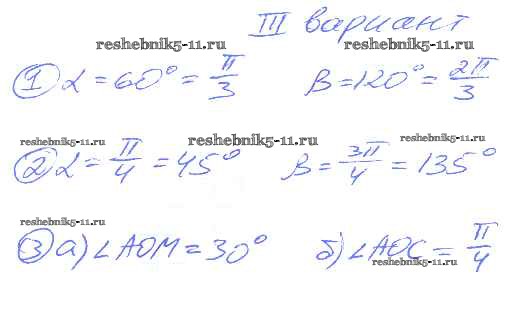 III вариант
reshebnik5-11.ru reshebnik5-11.ru
① α = 60° = π/3 β = 120° = 2π/3
reshebnik5-11.ru reshebnik5-11.ru reshebnik5-11.ru
② α = π/4 = 45° β = 3π/4 = 135°
reshebnik5-11.ru
③ а) ∠AOM = 30° б) ∠AOC = π/4
reshebnik5-11.ru